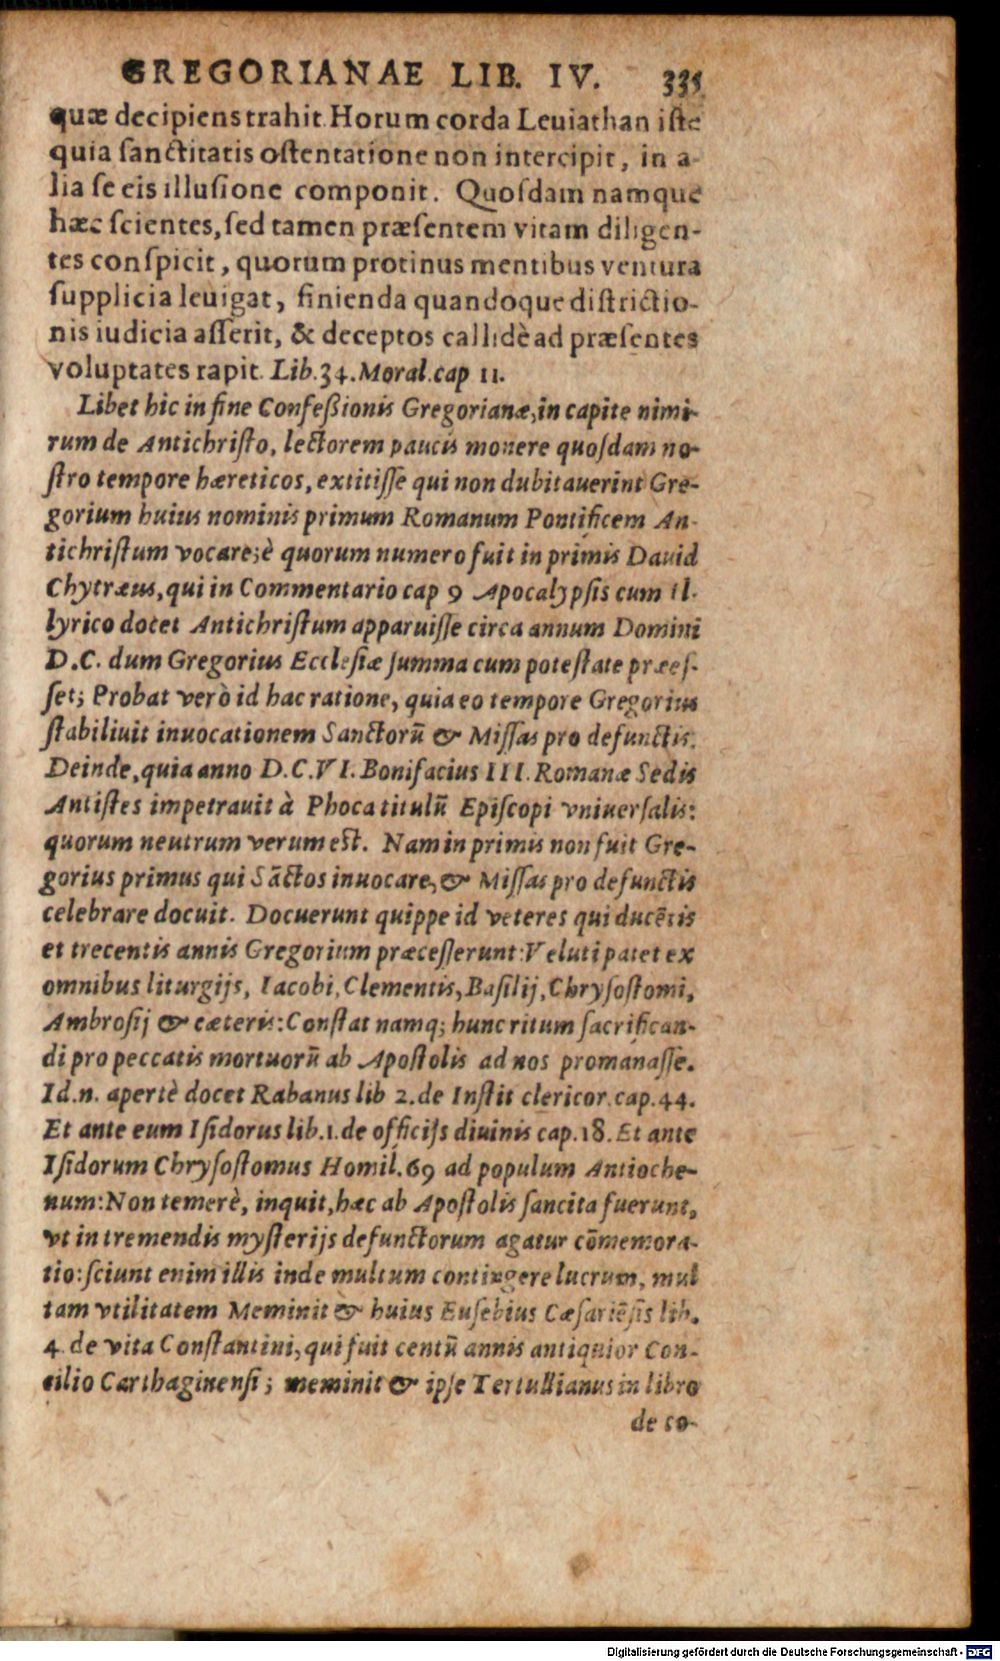 GREGORIANAE LIB. IV. 335
quæ decipiens trahit. Horum corda Leuiathan iſte
quia ſanctitatis oſtentatione non intercipit, in a-
lia ſe eis illuſione componit. Quoſdam namque
hæc ſcientes, ſed tamen præſentem vitam diligen-
tes conſpicit, quorum protinus mentibus ventura
ſupplicia leuigat, finienda quandoque diſtrictio-
nis iudicia aſſerit, & deceptos callidè ad præſentes
voluptates rapit. Lib. 34. Moral. cap 11.
Libet hic in fine Confeßionis Gregorianæ, in capite nimi-
rum de Antichriſto, lectorem paucis monere quoſdam no-
ſtro tempore hæreticos, extitiſſe qui non dubitauerint Gre-
gorium huius nominis primum Romanum Pontificem An-
tichriſtum vocare; è quorum numero fuit in primis Dauid
Chytræus, qui in Commentario cap 9 Apocalypſis cum Il-
lyrico docet Antichriſtum apparuiſſe circa annum Domini
D.C. dum Gregorius Eccleſiæ ſumma cum poteſtate præeſ-
ſet; Probat verò id hac ratione, quia eo tempore Gregorius
ſtabiliuit inuocationem Sanctorũ & Miſſas pro defunctis.
Deinde, quia anno D.C.VI. Bonifacius III. Romanæ Sedis
Antiſtes impetrauit à Phoca titulũ Epiſcopi vniuerſalis:
quorum neutrum verum eſt. Nam in primis non fuit Gre-
gorius primus qui Sãctos inuocare, & Miſſas pro defunctis
celebrare docuit. Docuerunt quippe id veteres qui ducẽtis
et trecentis annis Gregorium præceſſerunt: Veluti patet ex
omnibus liturgijs, Iacobi, Clementis, Baſilij, Chryſoſtomi,
Ambroſij & cæteris: Conſtat namq; hunc ritum ſacrifican-
di pro peccatis mortuorũ ab Apoſtolis ad nos promanaſſe.
Id.n. apertè docet Rabanus lib 2. de Inſtit clericor. cap. 44.
Et ante eum Iſidorus lib. 1. de officijs diuinis cap. 18. Et ante
Iſidorum Chryſoſtomus Homil. 69 ad populum Antioche-
num: Non temerè, inquit, hæc ab Apoſtolis ſancita fuerunt,
vt in tremendis myſterijs defunctorum agatur cõmemora-
tio: ſciunt enim illis inde multum contingere lucrum, mul
tam vtilitatem Meminit & huius Euſebius Cæſariẽſis lib.
4. de vita Conſtantini, qui fuit centũ annis antiquior Con-
cilio Carthaginenſi; meminit & ipſe Tertullianus in libro
de co-
Digitalisierung gefördert durch die Deutsche Forschungsgemeinschaft - DFG